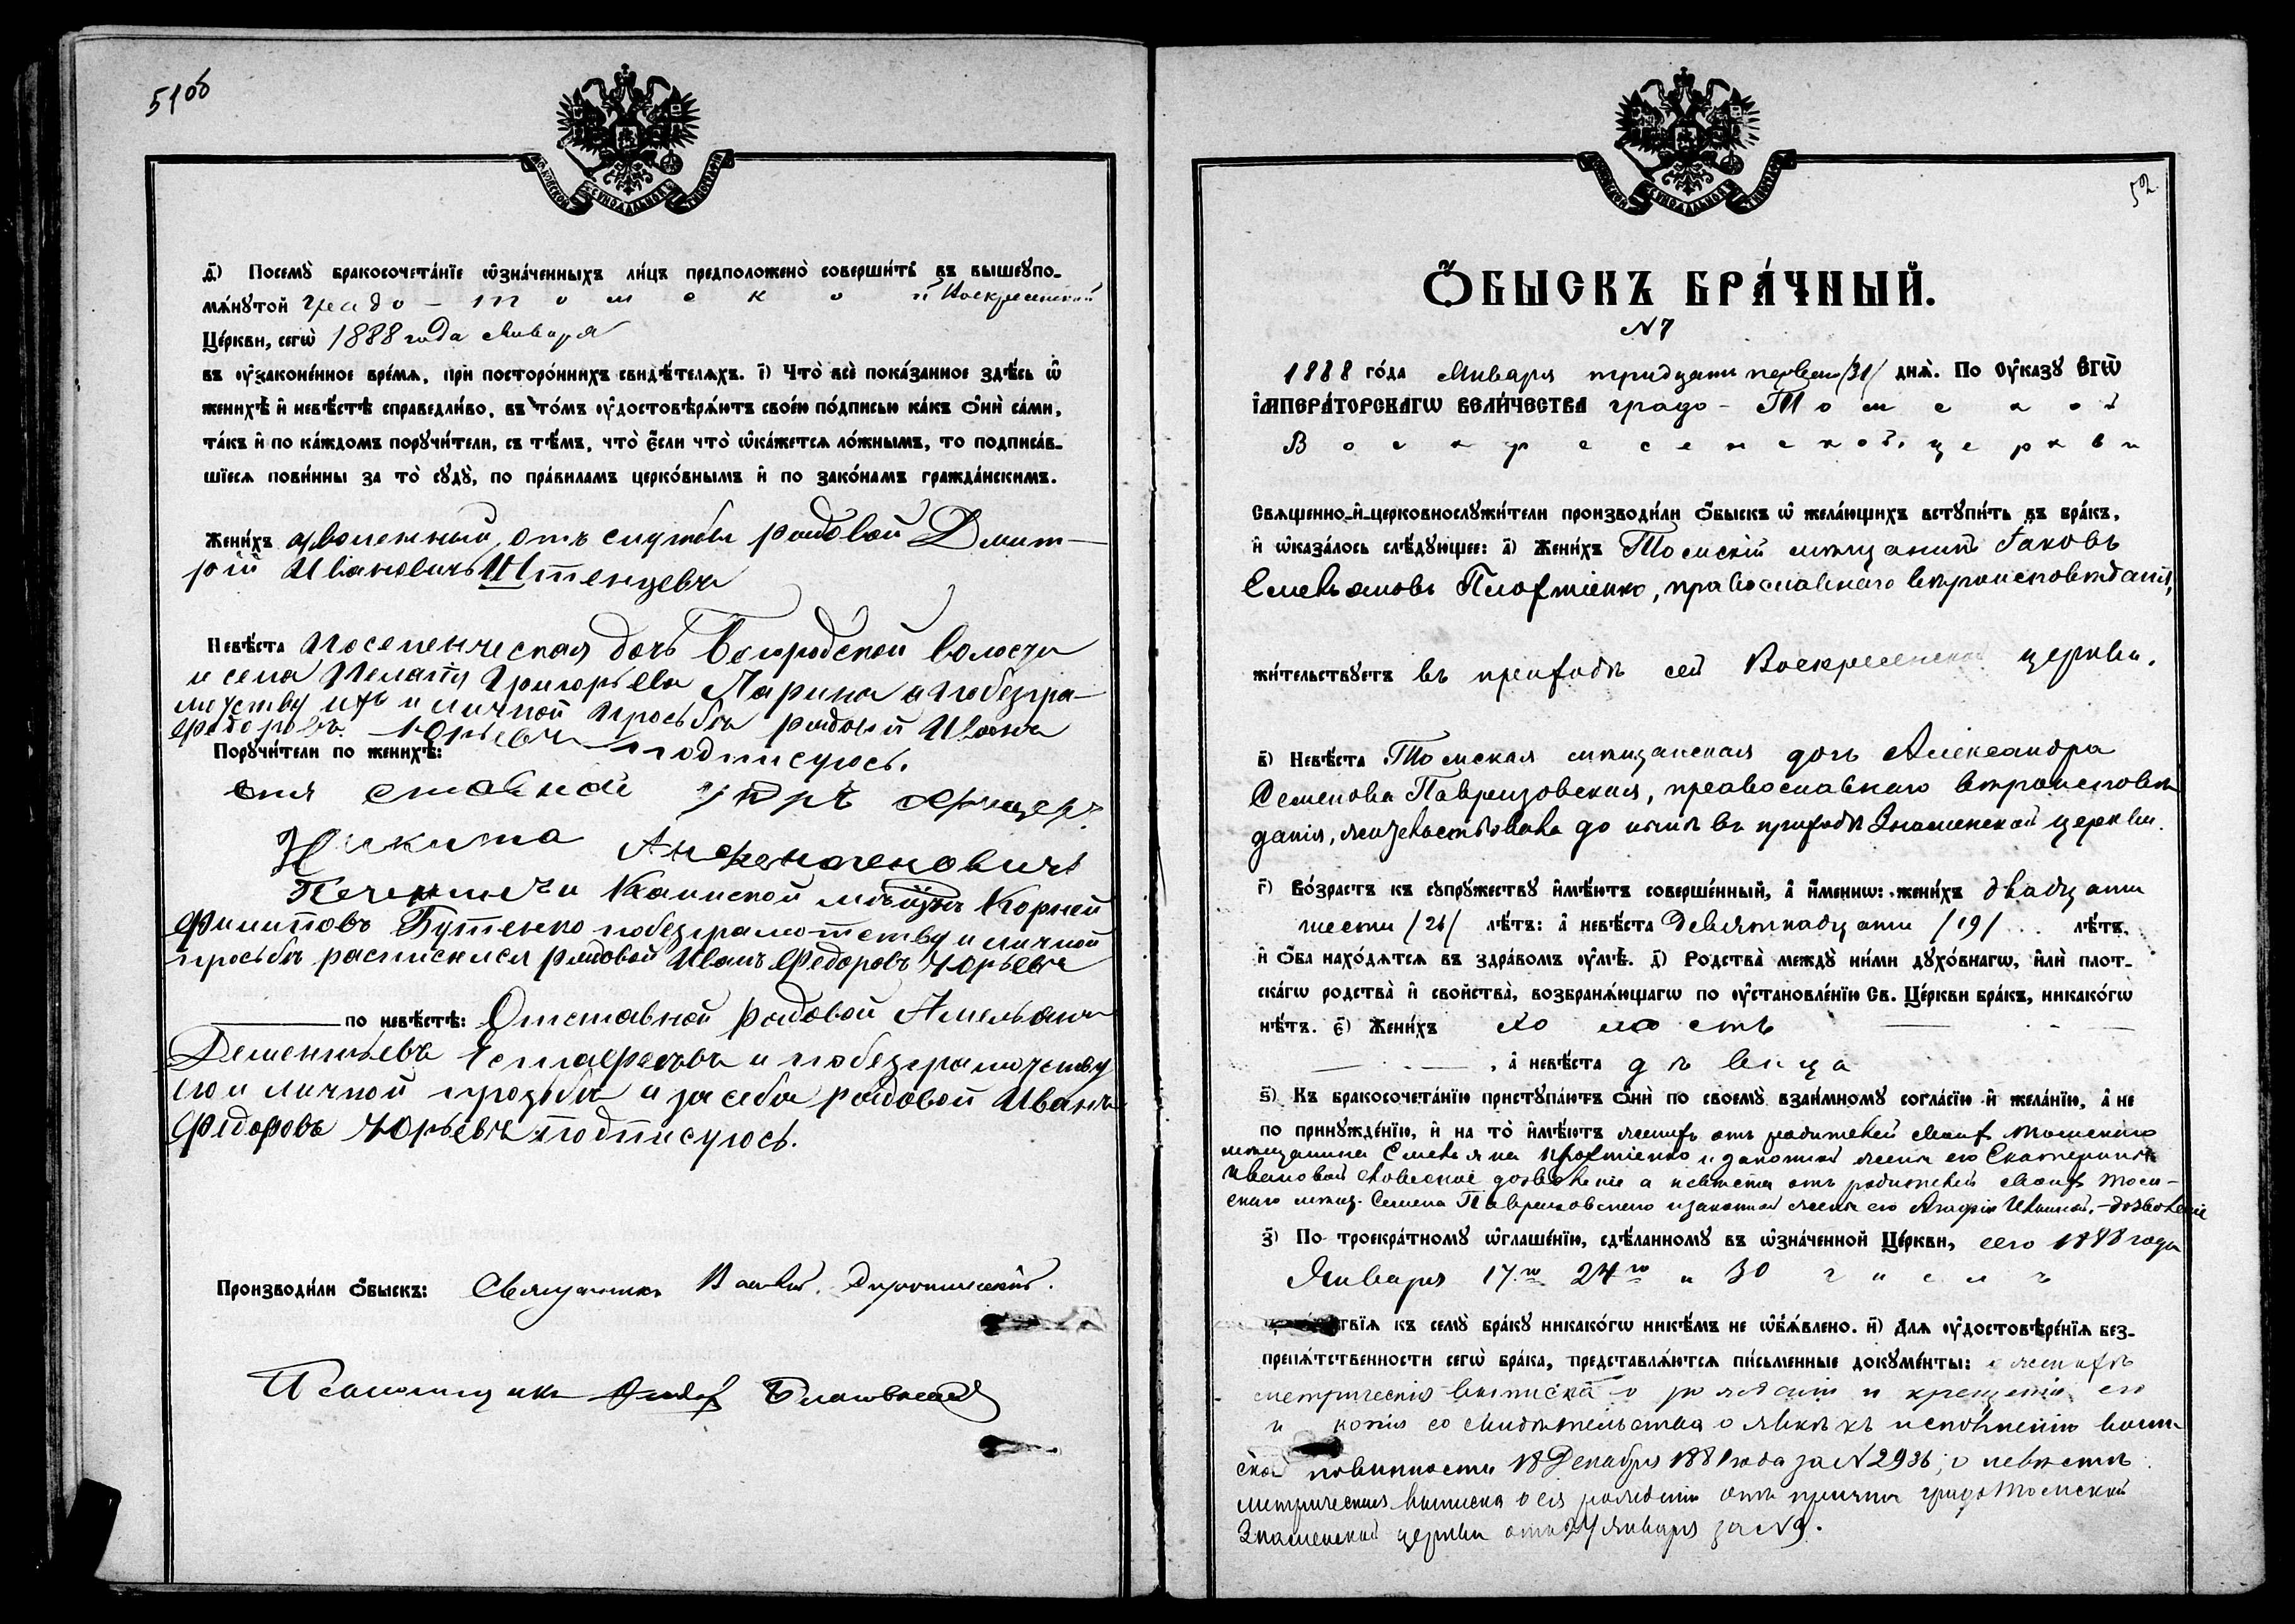 51об
МОСКОВСКОЙ СѴНОДАЛЬНОЙ ТИПОГРАФІИ
д҃і) Посемꙋ̀ бракосочета́нїе ѡ҆зна́ченныхъ ли́цъ предположено̀ соверши́ть въ вышеꙋпо-
мѧ́нꙋтой градо-Томской Воскресенской
Це́ркви, сегѡ̀ 1888 года Января
въ ᲂу҆зако́ненное вре́мѧ, при посторо́ннихъ свидѣ́телѧхъ. і҃) Что̀ всѐ пока́занное здѣ́сь ѡ҆
женихѣ̀ и҆ невѣ́стѣ справедли́во, въ то́мъ ᲂу҆достовѣрѧ́ютъ свое́ю по́дписью ка́къ ѻ҆нѝ са́ми,
та́къ и҆ по ка́ждомъ порꙋчи́тели, съ тѣ́мъ, что̀ є҆́сли что̀ ѡ҆ка́жется ло́жнымъ, то подписа́в-
шїеся пови́нны за то̀ сꙋдꙋ̀, по пра́виламъ церко́внымъ и҆ по зако́намъ гражда́нскимъ.
Жени́хъ уволенный отъ службы рядовой Дмит-
рій Ивановичъ Штенцевъ
Невѣ́ста Поселенческая дочь Богородской волости
и села Пелагѣя Григорьева Ларина а по безгра-
мотству ихъ и личной просьбѣ рядовой Иванъ
Федоровъ Юрьевъ подписуюсь.
Порꙋчи́тели по женихѣ̀:
отставной
Никита
Каинской мѣщан. Корней
Филиповъ Бутенко по безграмотству и личной
просьбѣ расписался рядовой Иванъ Федоровъ Юрьевъ
по невѣ́стѣ: Отставной рядовой Амельянъ
Дементьевъ и по безграмотству
его и личной прозьбѣ и за себя рядовой Иванъ
Федоровъ Юрьевъ подписуюсь.
Производи́ли ѻ҆́быскъ: Священникъ Васил.
Псаломщикъ
52.
МОСКОВСКОЙ СѴНОДАЛЬНОЙ ТИПОГРАФІИ
Ѻ҆́БЫСКЪ БРА́ЧНЫЙ.
№ 7
1888 го́да Января тридцать перваго /31/ днѧ̀. По ᲂу҆ка́зꙋ Є҆ГѠ̀
І҆МПЕРА́ТОРСКАГѠ ВЕЛИ́ЧЕСТВА градо-Томской
Воскресенской церкви
Свѧще́нно-и҆-церковнослꙋжи́тели производи́ли ѻ҆́быскъ ѡ҆ жела́ющихъ встꙋпи́ть въ бра́къ,
и҆ ѡ҆каза́лось слѣ́дꙋющее: а҃) Жени́хъ Томскій мѣщанинъ Іаковъ
Емельяновъ Плохтіенко, православнаго вѣроисповѣданія,
жи́тельствꙋетъ въ приходѣ сей Воскресенской церкви.
в҃) Невѣ́ста Томская мѣщанская дочь Александра
Семенова Павреизовская, православнаго вѣроисповѣ
данія, жительствовала до нынѣ въ приходѣ Знаменской церкви.
г҃) Во́зрастъ къ сꙋпрꙋ́жествꙋ и҆мѣ́ютъ соверше́нный, а҆ и҆́меннѡ: жени́хъ двадцати
шести /26/ лѣ́тъ: а҆ невѣ́ста Девятнадцати /19/ лѣ́тъ,
и҆ ѻ҆́ба нахо́дѧтсѧ въ здра́вомъ ᲂу҆мѣ̀. д҃) Родства̀ междꙋ̀ ни́ми дꙋхо́внагѡ, и҆лѝ плот-
ска́гѡ родства̀ и҆ свойства̀, возбранѧ́ющагѡ по ᲂу҆становле́нїю Св. Це́ркви бра́къ, никако́гѡ
нѣ́тъ. є҃) Жени́хъ холостъ
, а҆ невѣ́ста дѣвица
ѕ҃) Къ бракосочета́нїю пристꙋпа́ютъ ѻ҆нѝ по своемꙋ̀ взаи́мномꙋ согла́сїю и҆ жела́нїю, а҆ не
по принꙋжде́нїю, и҆ на то̀ и҆мѣ́ютъ женихъ отъ родителей своихъ томскаго
мѣщанина Емельяна Плохтіенко и законной жены его Екатерины
Ивановой словесное дозволеніе а невѣста отъ родителей своихъ Том-
скаго мѣщ. Семена и законной жены его Агафіи Ивановой, - дозволеніе
з҃) По троекра́тномꙋ ѡ҆глаше́нїю, сдѣ́ланномꙋ въ ѡ҆зна́ченной Це́ркви, сего 1888 года
Января 17го 24го и 30 числъ
препѧ́тствїѧ къ семꙋ̀ бра́кꙋ никако́гѡ никѣ́мъ не ѡ҆б̾ѧ́влено. и҃) Для ᲂу҆достовѣре́нїѧ без-
препѧ́тственности сегѡ̀ бра́ка, представлѧ́ются пи́сьменные докꙋме́нты: о женихѣ
метрическая выписка о рожденіи и крещеніи его
и копія со свидѣтельства о явкѣ къ исполненію воин-
ской повинности 18 Декабря 1881 года за № 2936; о невѣстѣ
метрическая выписка о ея рожденіи отъ причта градо Томской
Знаменской церкви отъ 24 Января за № 9.